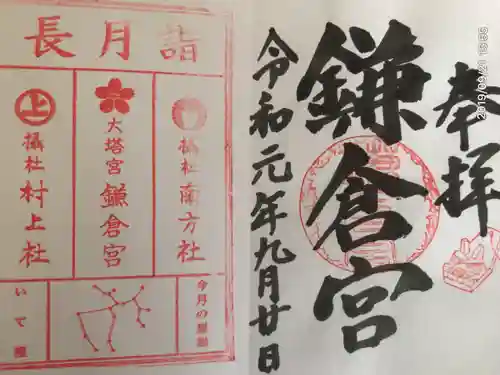 奉拝
鎌倉宮
令和元年九月廿日
長月詣
摂社南方社
大塔宮鎌倉宮
摂社村上社
上
今月の星座
いて座